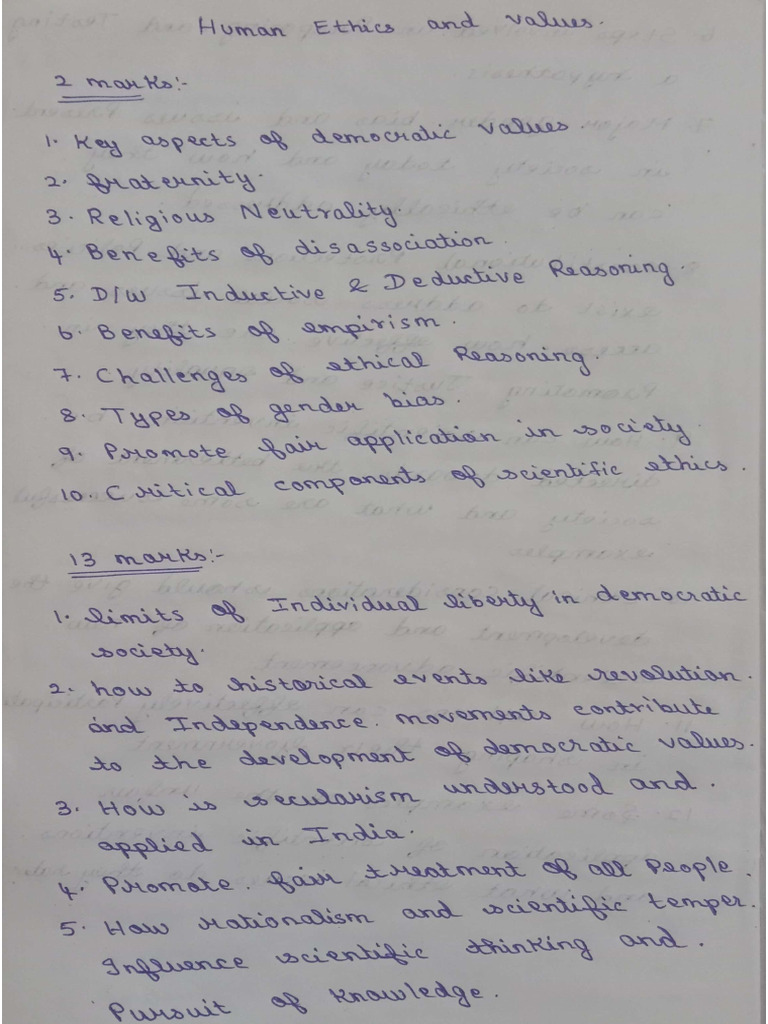 Human Ethics and values.
2 marks:-
1. Key aspects of democratic values.
2. fraternity.
3. Religious Neutrality.
4. Benefits of disassociation.
5. D/W Inductive & Deductive Reasoning.
6. Benefits of empirism.
7. Challenges of ethical Reasoning.
8. Types of gender bias.
9. Promote fair application in society.
10. Critical components of scientific ethics.
13 marks:-
1. limits of Individual liberty in democratic
society.
2. how to historical events like revolution.
and Independence. movements contribute
to the development of democratic values.
3. How is secularism understood and.
applied in India.
4. Promote. fair treatment of all People.
5. How rationalism and scientific temper.
Influence scientific thinking and.
Pursuit of Knowledge.